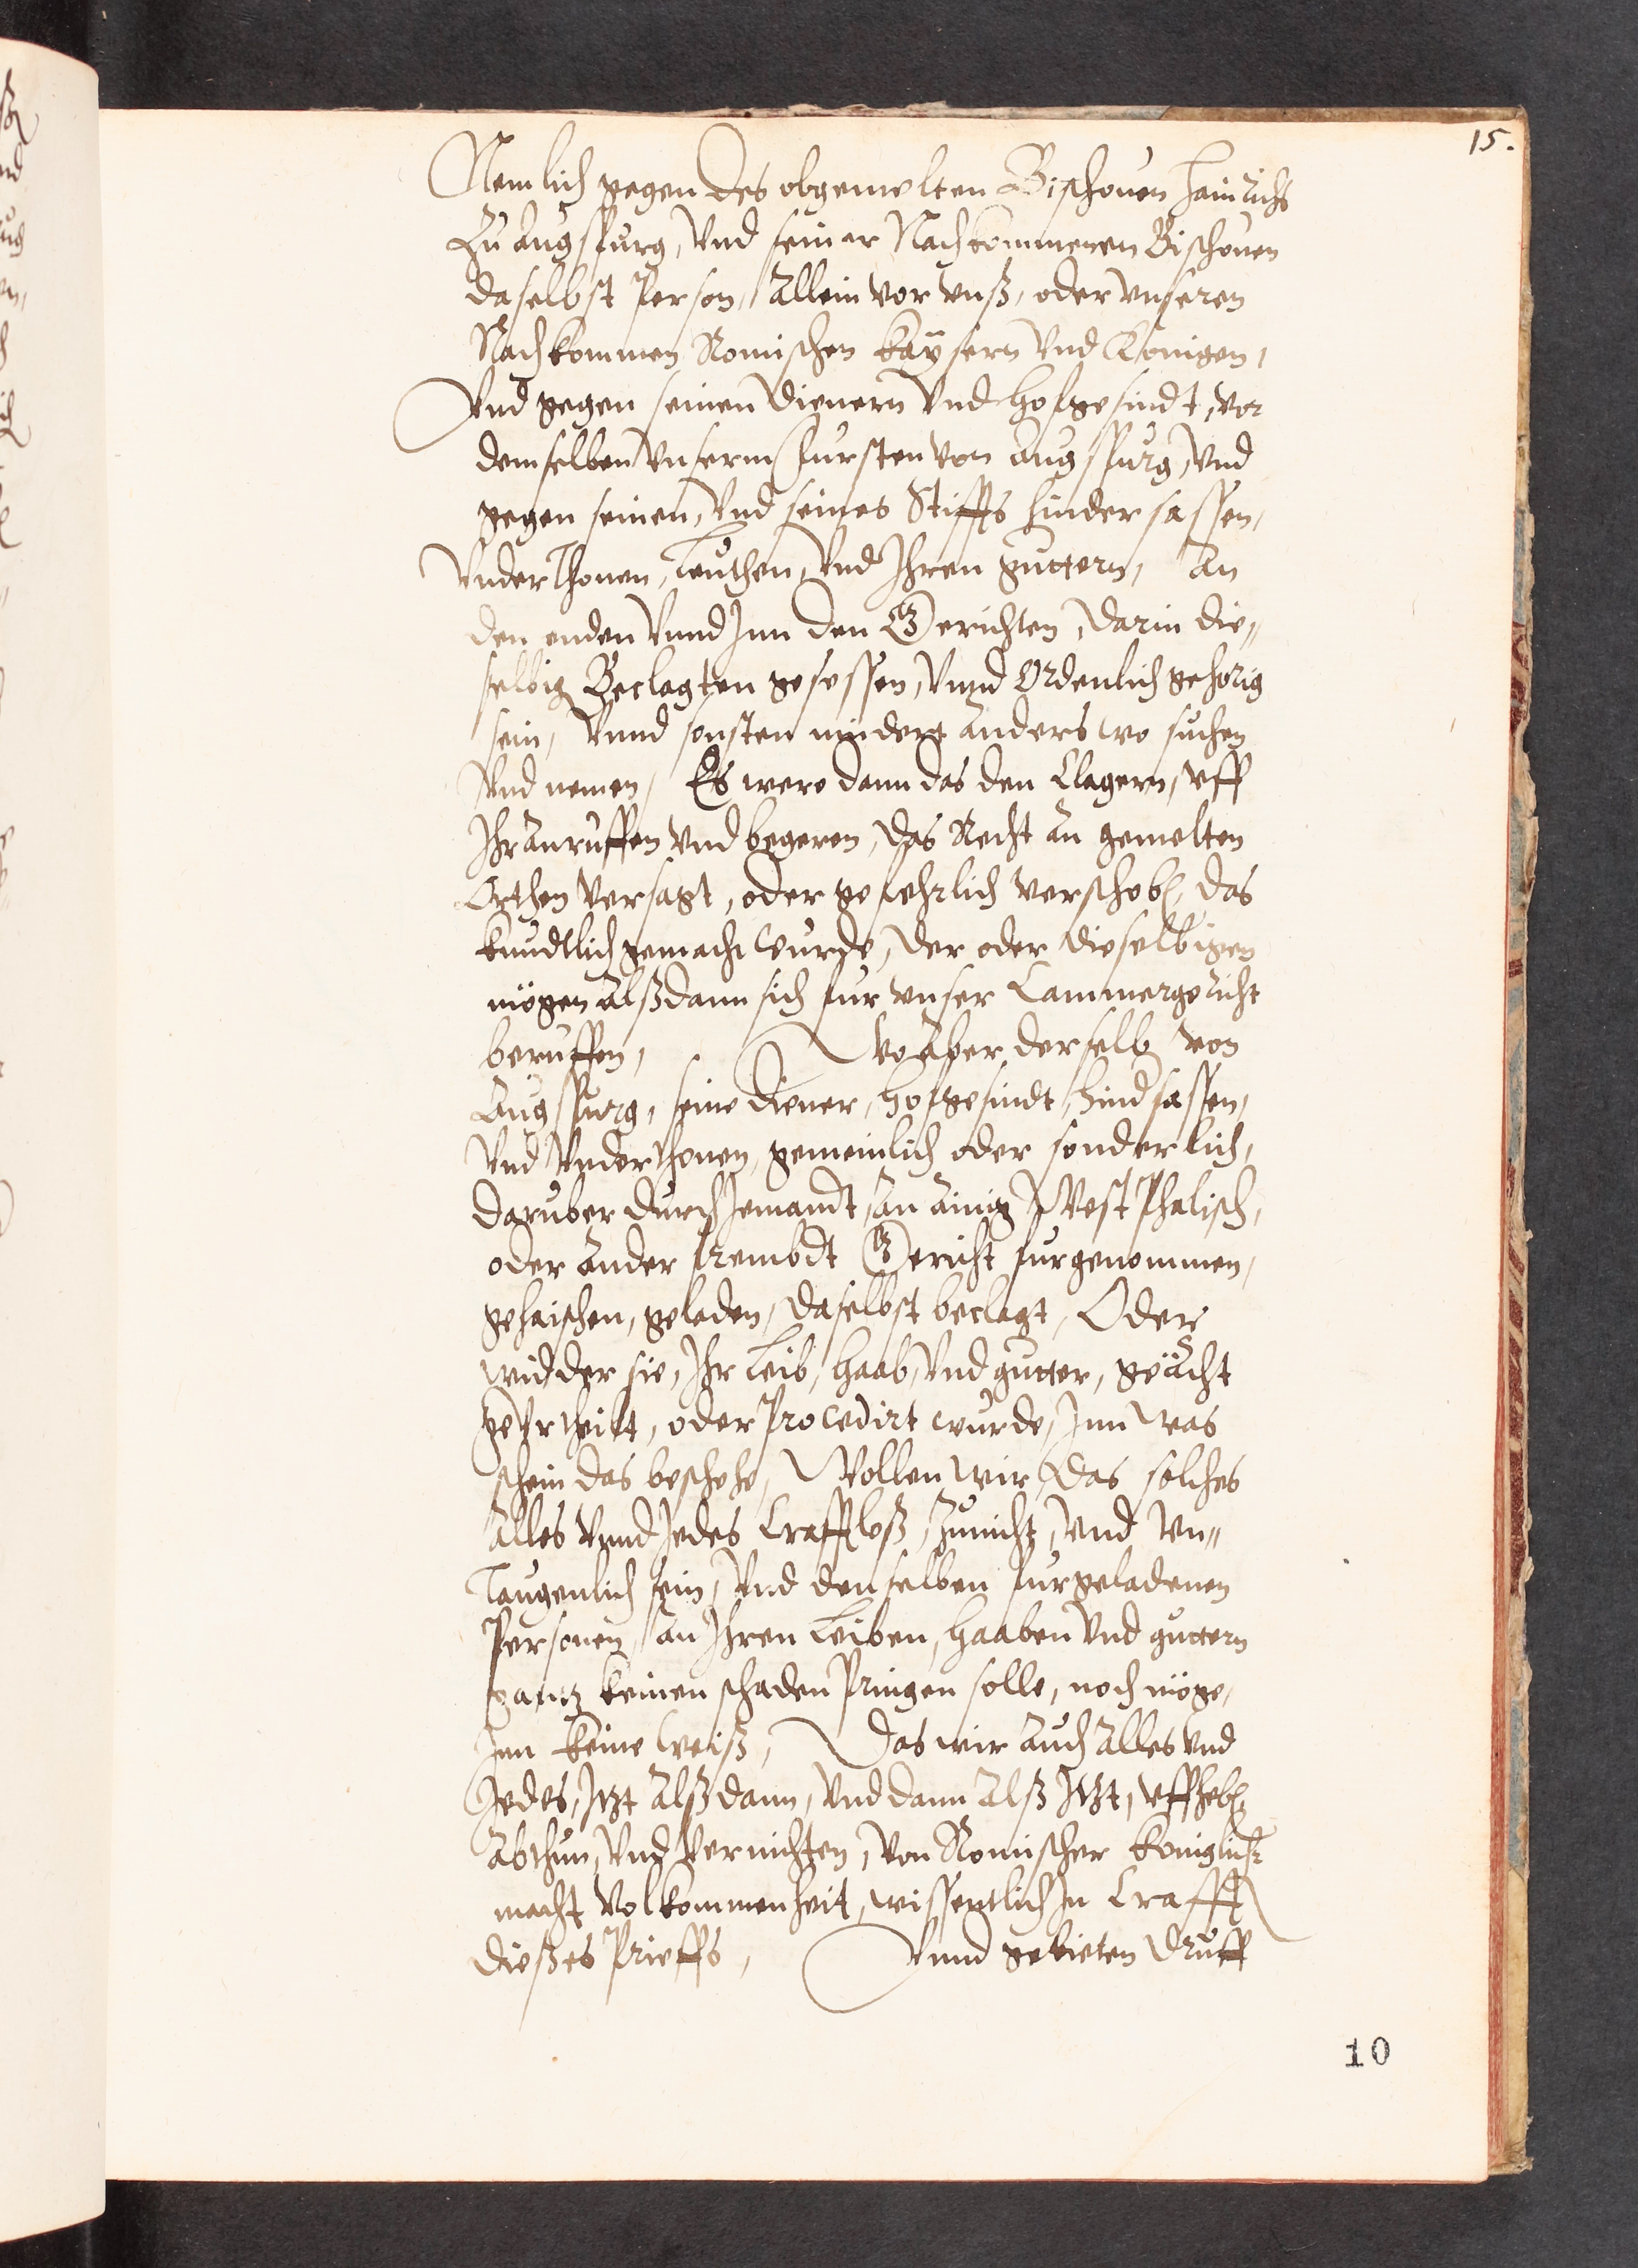 15.
Nemlich gegen des obgemelten Bischouen Hainrichs
Zu Augspurg, Vnd seiner Nachkommenen Bischouen
daselbst Person, Allein vor vnß, oder vnseren
Nachkommen Romischen Kaÿsern Vnd Königen,
Vnd gegen seinen Dienern Vnd Hofgesindt, vor
demselben Vnserm Fursten von Augspurg, Vnd
gegen seinen, Vnd seines Stiffts hindersassen,
Vnderthonen, Leuthen, Vnd Ihren guttern, An
den enden Vnnd Inn den Gerichten, darin die„
selbig Beclagten gesessen, Vnnd Ordenlich gehörig
sein, Vnnd sonsten nindert anderswo suchen
Vnd nemen, Es were dann das den Clagern, vff
Ihr anruffen Vnd begeren, das Recht an gemelten
Orthen Versagt, oder gefehrlich Verschob, das
kundtlich gemacht wurde, der oder dieselbigen
mögen Alßdann sich fur vnser Cammergericht
beruffen, Wo aber derselb von
Augspurg, seine Diener, Hofgesindt, Hindsassen,
Vnd Vnderthonen, gemeinlich oder sonderlich,
daruber durch Jemandt, An ainig WestPhalisch,
oder ander frembdt Gericht furgenommen,
gehaischen, geladen, daselbst beclagt, Oder
widder sie, Ihr Leib, Haab, Vnd gutter, geächt
geVrtheilt, oder Procedirt wurde, Inn was
schein das beschehe, Wollen wir, das solches
Alles Vnnd Jedes Crafftloß, Zunicht, Vnd Vn„
Taugenlich sein, Vnd denselben furgeladenen
Personen, an Ihren Leiben, Haaben Vnd guttern
gantz keinen schaden Pringen solle, noch möge,
Inn keine weiß, Das wir auch Alles Vnd
Jedes, Jtzt Alßdann, Vnd dann Alß Jtzt, vffheb,
Abthun, Vnd Vernichten, von Romischer Königlicher
macht Volkommenheit, wissentlich In Crafft
dießes Prieffs, Vnnd gebieten druff
10